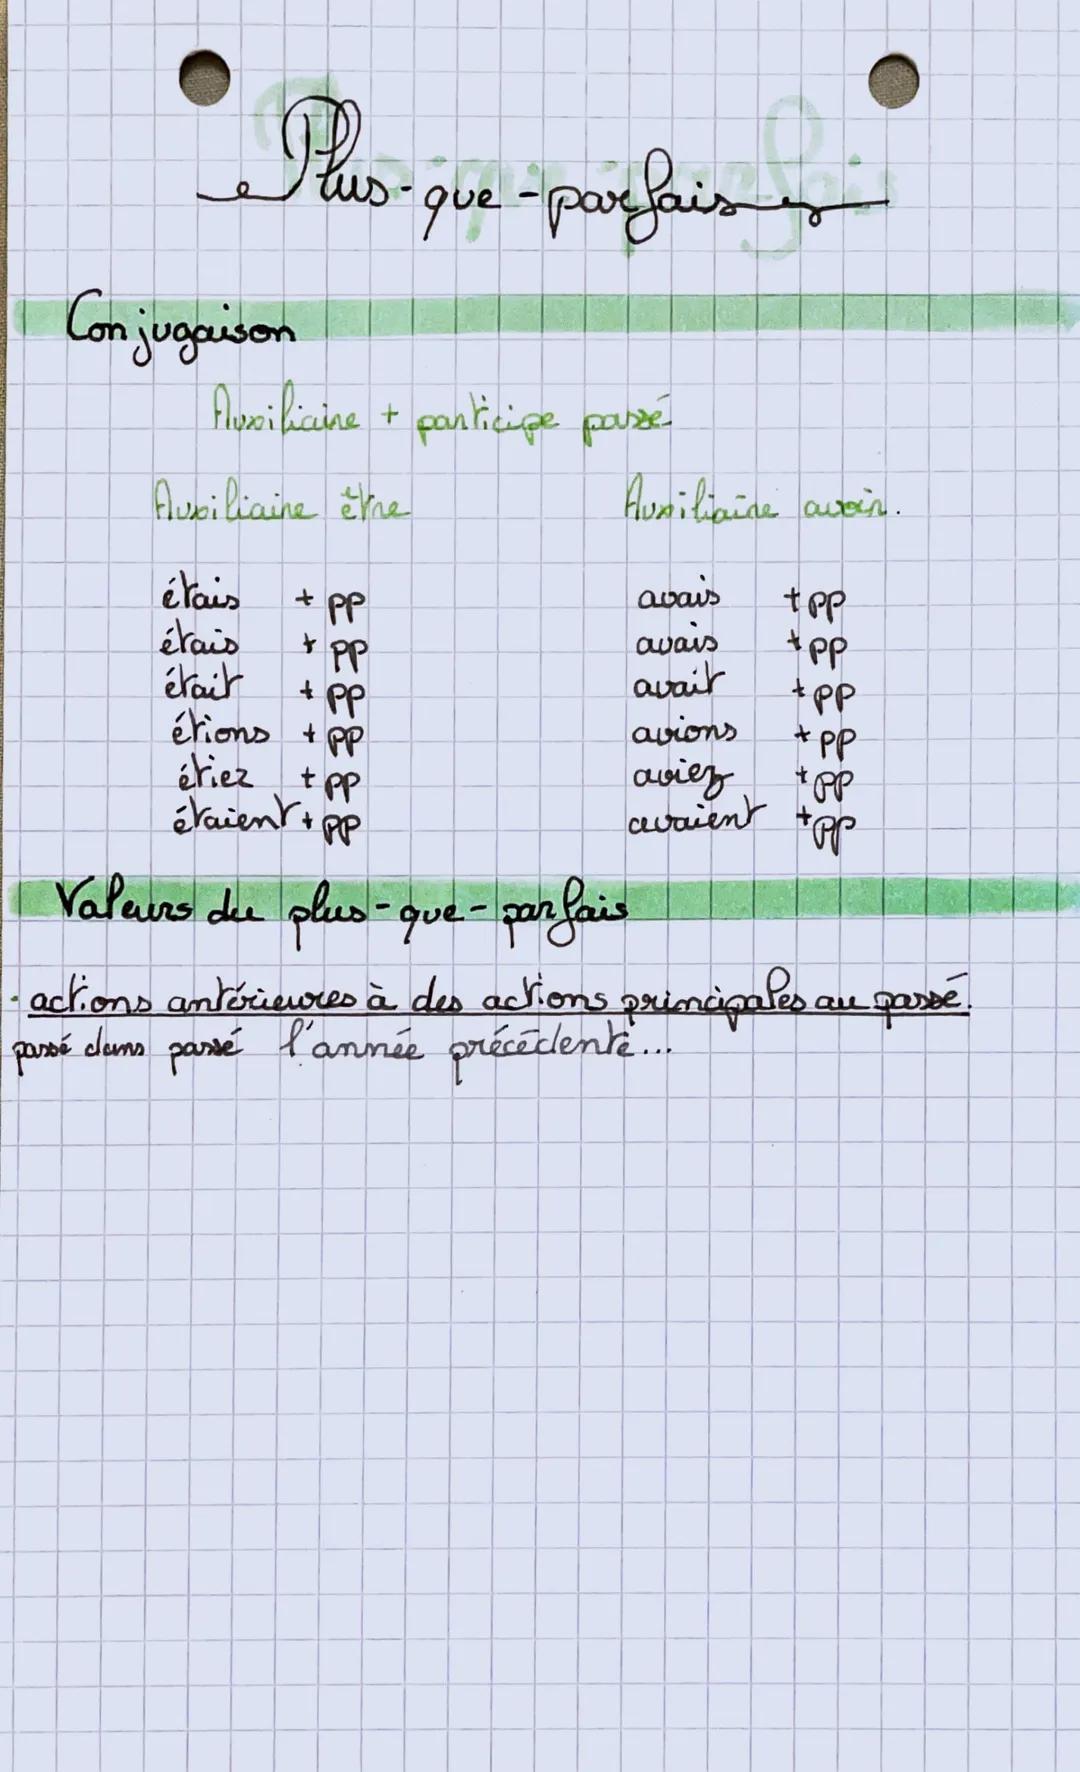 Plus-que-parfais
Conjugaison
Auxiliaire + participe passé
Auxiliaire être Auxiliaire avoir.
étais + pp avais + pp
étais + pp avais + pp
était + pp avait + pp
étions + pp avions + pp
étiez + pp aviez + pp
étaient + pp avaient + pp
Valeurs du plus-que-parfais
· actions antérieures à des actions principales au passé.
passé dans passé l'année précédente...